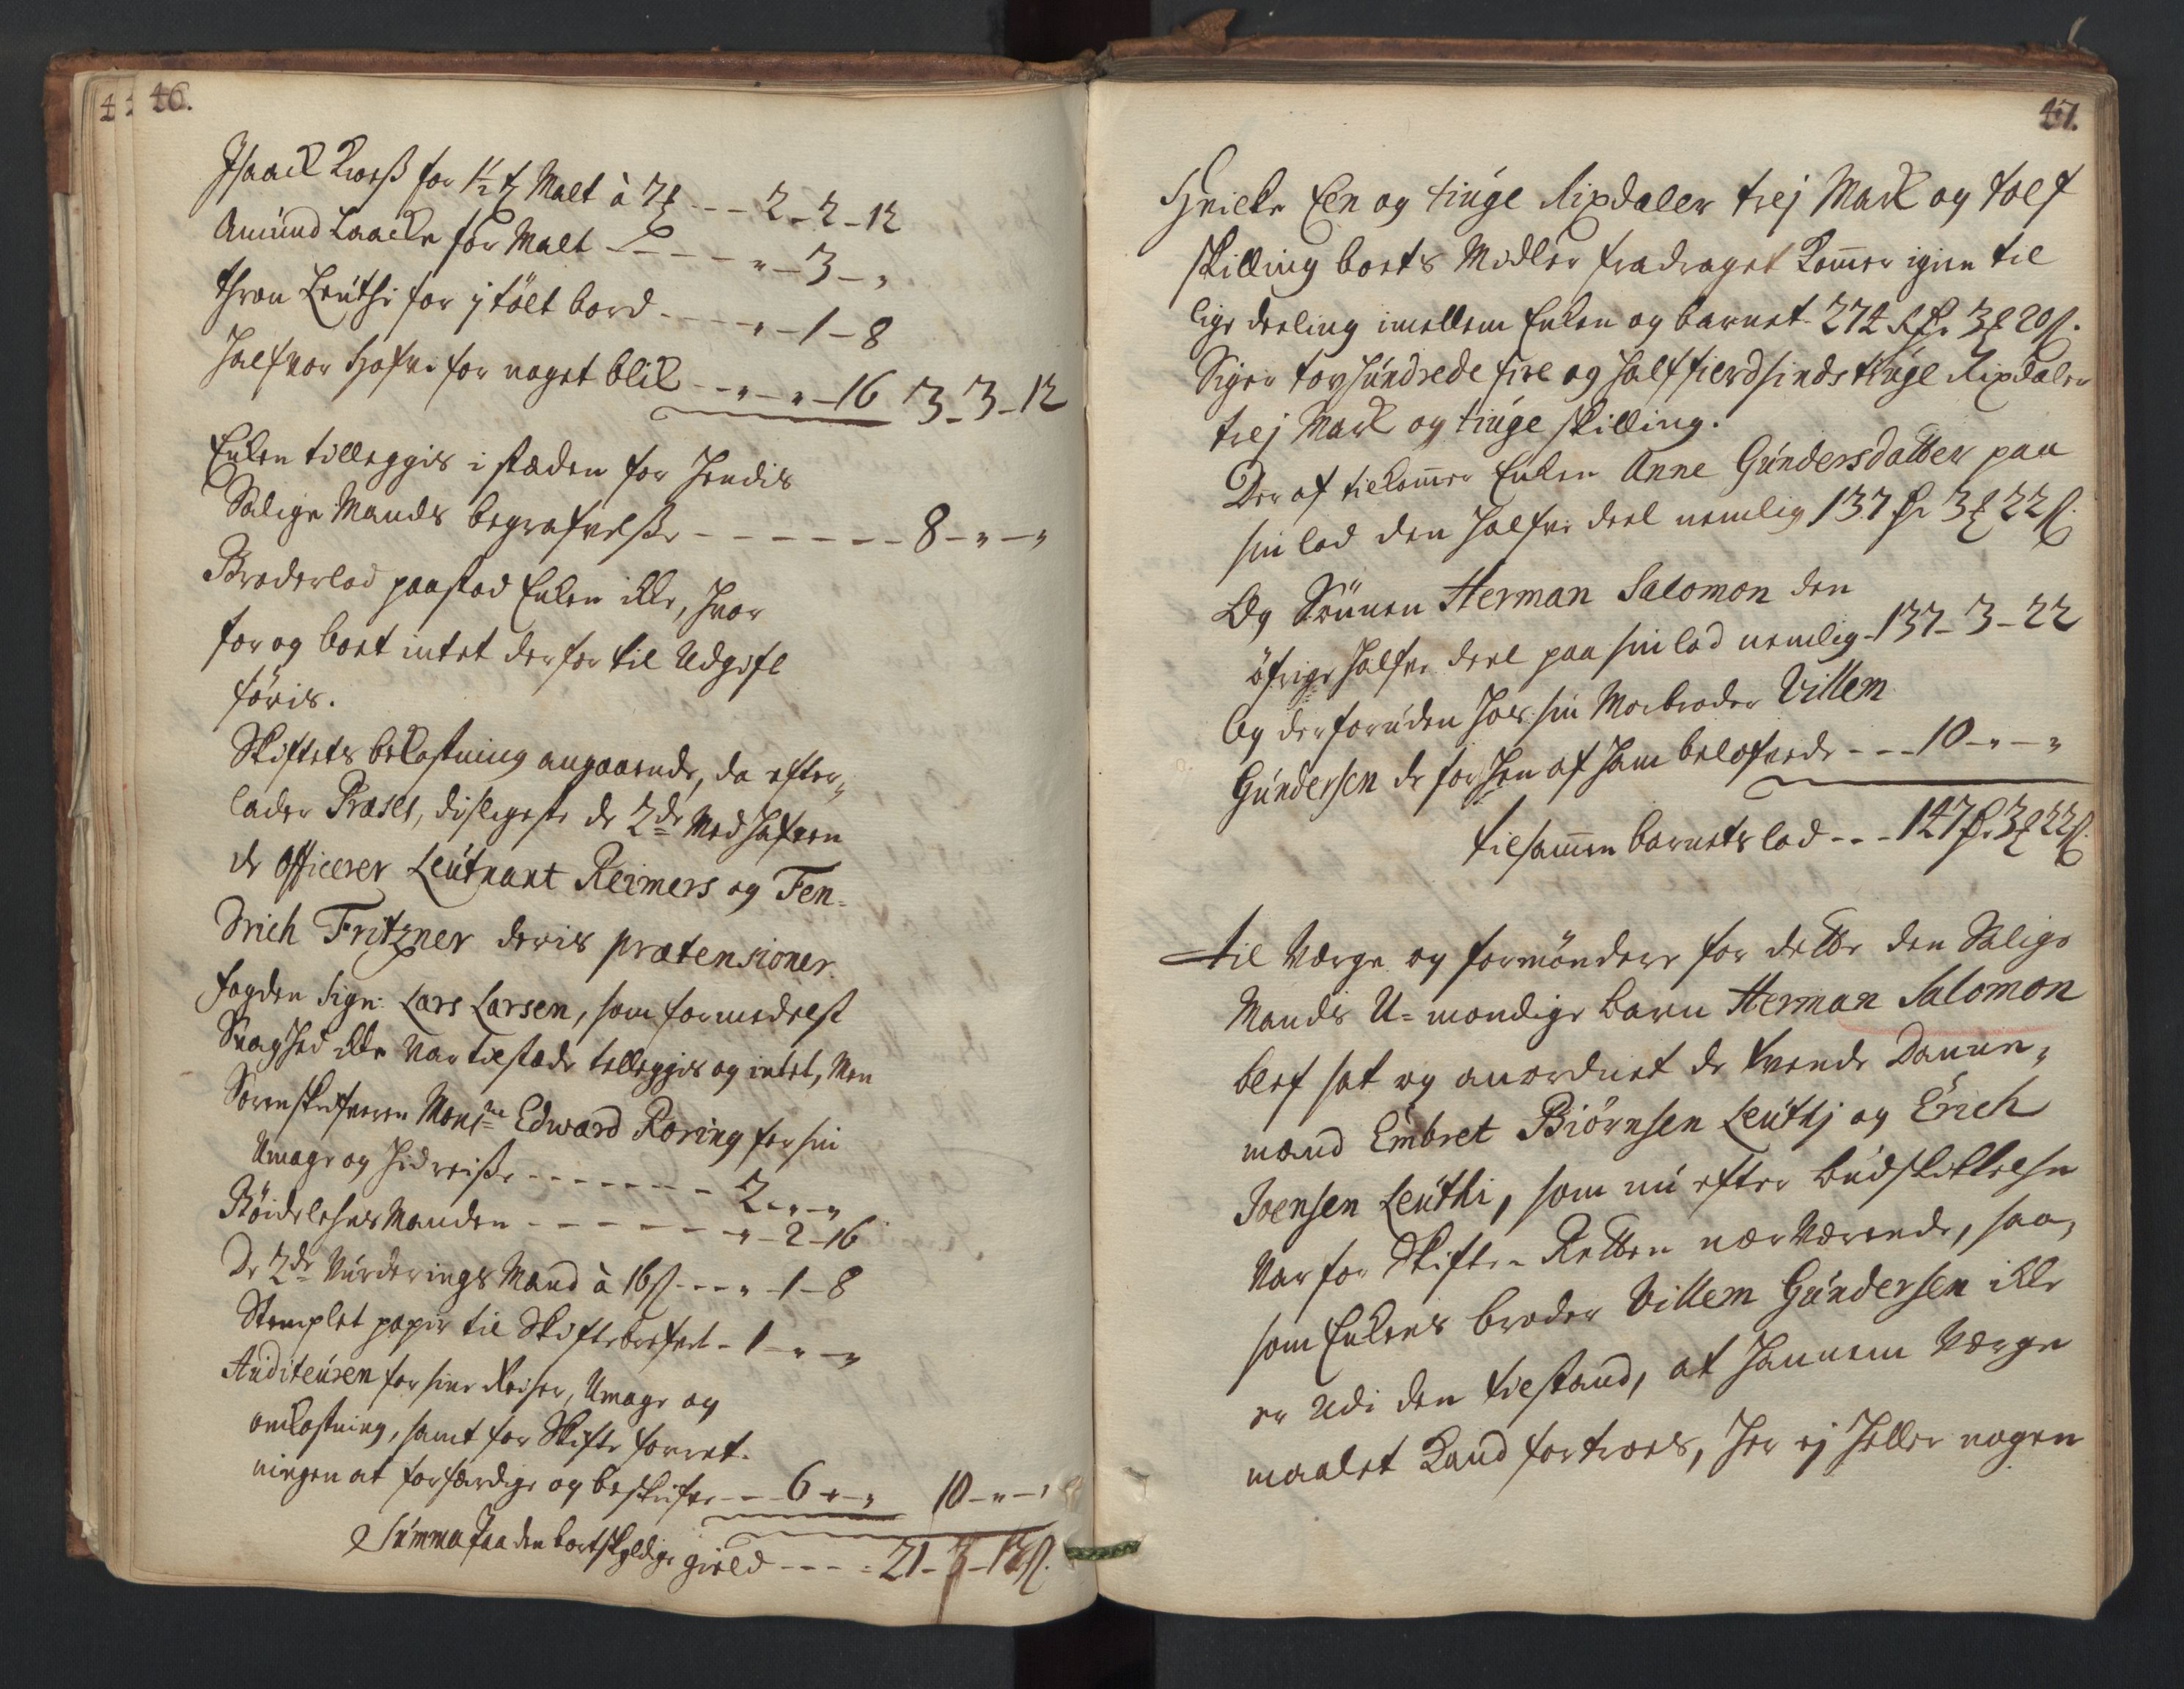 46.
Isaack Kroeß for 1½ t Malt à 7 ¥ --- 2-2-12
Amund Laacke for Malt ---- " - 3 - "
Thron Leuthi for j tölt bord ---- " - 1 - 8
Halfvor Hofve for noget blik -- " - " - 16 3-3-12
Enken tilleggis i stæden for hendis
Salige Mands begrafvelße ------ 8 - " - "
Broderlod paastod Enken ikke, hvor
for og boet intet derfor til Udgift
føris.
Skiftets bekostning angaaende, da efter,,
lader Præses, disligeste de 2de Medhafven
de Officerer Leutnant Reimers og Fen-
drich Fritzner deris prætensioner.
fogden Sign: Lars Larsen, som formedelst
Svaghed ikke var tilstæde tilleggis og intet, Men
Sorenskrifveren Monsr Edward Röring for sin
Umage og hidreiße ------- 2 - " - "
Böidelehns Manden ------ " - 2 - 16
De 2de Vurderings Mænd à 16 ß --- " - 1 - 8
Stemplet papir til Skiftebrefvet - 1 - " - "
Auditeuren for sine Reiser, Umage og
omkostning, samt for Skifte forret-
ningen at forfærdige og beskrifve -- 6 - " - " 10 - " - "
Summa paa den bortskyldige gield ---- 21-3-12 ß.
47.
Hvilke Een og tiuge Rixdaler trej Mark og tolf
skilling boets Midler fradraget kommer igien til
lige deeling imellem Enken og barnet 274 Rdr 3 ¥ 20 ß.
Siger tovhundrede fire og halffierdsindstiuge Rixdaler
trej Mark og tiuge skilling.
Der af tilkommer Enken Anne Gundersdatter paa
sin lod den halfve deel nemlig 137 dr 3 ¥ 22 ß.
Og Sönnen Herman Salomon den
öfrige halfve deel paa sin lod nemlig - 137-3-22
Og derforuden hos sin Morbroder Villem
Gundersen de forhen af ham belofvede --- 10 - " - "
tilsammen barnets lod --- 147 dr 3 ¥ 22 ß.
Til Værge og formöndere for dette den Salige
Mands U-mondige barn Herman Salomon
blef sat og anordnet de tvende Danne,,
mænd Embret Biörnsen Leuthj og Erich
Joensen Leuthi, som nu efter budskikkelse
var for Skifte-Retten nærværende, saa,,
som Enkens broder Villem Gundersen ikke
er udi den tilstand, at hannem Værge
maalet kand fortroes, her ej heller nogen